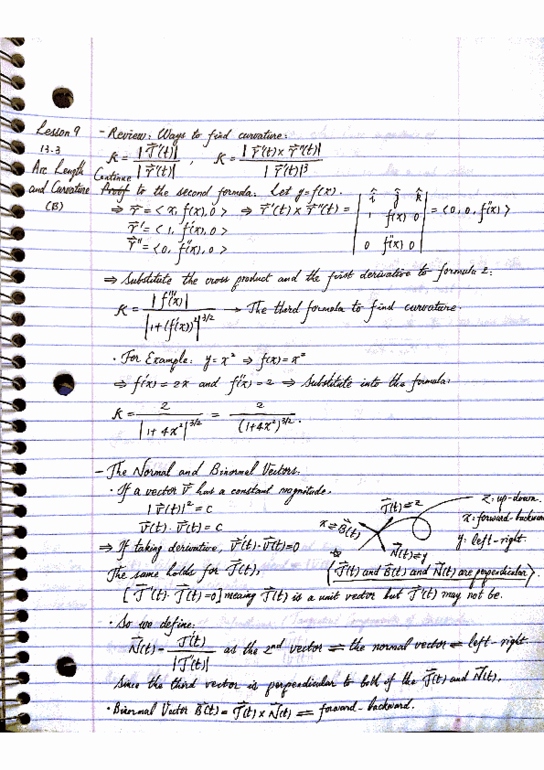 Lesson 9
13.3
Arc Length
and Curvature
(B)
- Review: Ways to find curvature:
K = |T⃗'(t)| / |r⃗'(t)| , K = |r⃗'(t) × r⃗''(t)| / |r⃗'(t)|³
Continue to the second formula: Let y = f(x).
⇒ r⃗ = < x, f(x), 0 > ⇒ r⃗'(t) × r⃗''(t) = | î ĵ k̂ ; 1 f'(x) 0 ; 0 f''(x) 0 | = < 0, 0, f''(x) >
r⃗' = < 1, f'(x), 0 >
r⃗'' = < 0, f''(x), 0 >
⇒ Substitute the cross product and the first derivative to formula 2:
K = |f''(x)| / |1 + (f'(x))²|^3/2 → The third formula to find curvature.
· For Example: y = x² ⇒ f(x) = x²
⇒ f'(x) = 2x and f''(x) = 2 ⇒ Substitute into the formula:
K = 2 / |1 + 4x²|^3/2 = 2 / (1 + 4x²)^3/2.
- The Normal and Binormal Vectors.
· If a vector V⃗ has a constant magnitude.
|V⃗(t)|² = C
V⃗(t) · V⃗(t) = C
⇒ If taking derivative, V⃗'(t) · V⃗(t) = 0
The same holds for T⃗(t),
[T⃗'(t) · T⃗(t) = 0] meaing T⃗(t) is a unit vector but T⃗'(t) may not be.
T⃗(t) ⇌ z
x ⇌ B⃗(t)
N⃗(t) ⇌ y
z: up-down.
x: forward-backward
y: left-right
(T⃗(t) and B⃗(t) and N⃗(t) are perpendicular).
· So we define:
N⃗(t) = T⃗'(t) / |T⃗'(t)| as the 2nd vector ⇌ the normal vector ⇌ left-right
Since the third vector is perpendicular to both of the T⃗(t) and N⃗(t).
· Binormal Vector B⃗(t) = T⃗(t) × N⃗(t) ⇌ forward-backward.